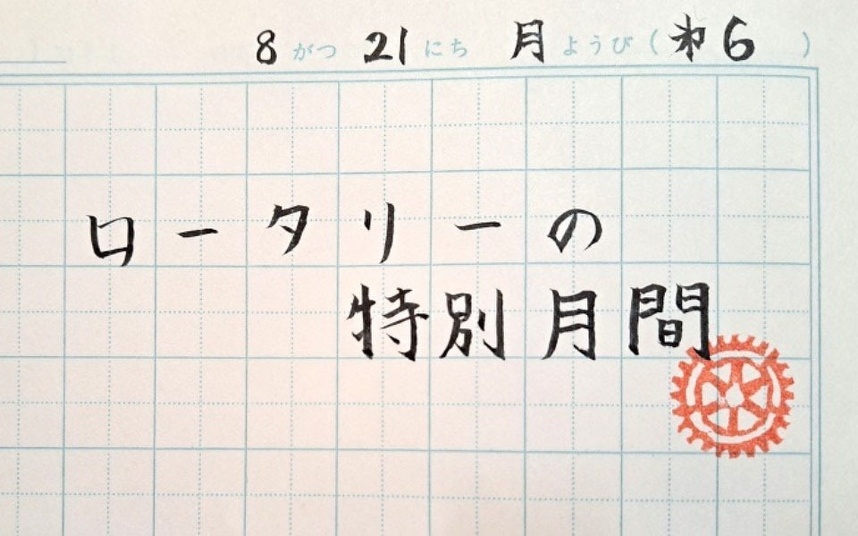 8 がつ 21 にち 月 ようび ( 㐧6 )
ローターリーの
特別月間